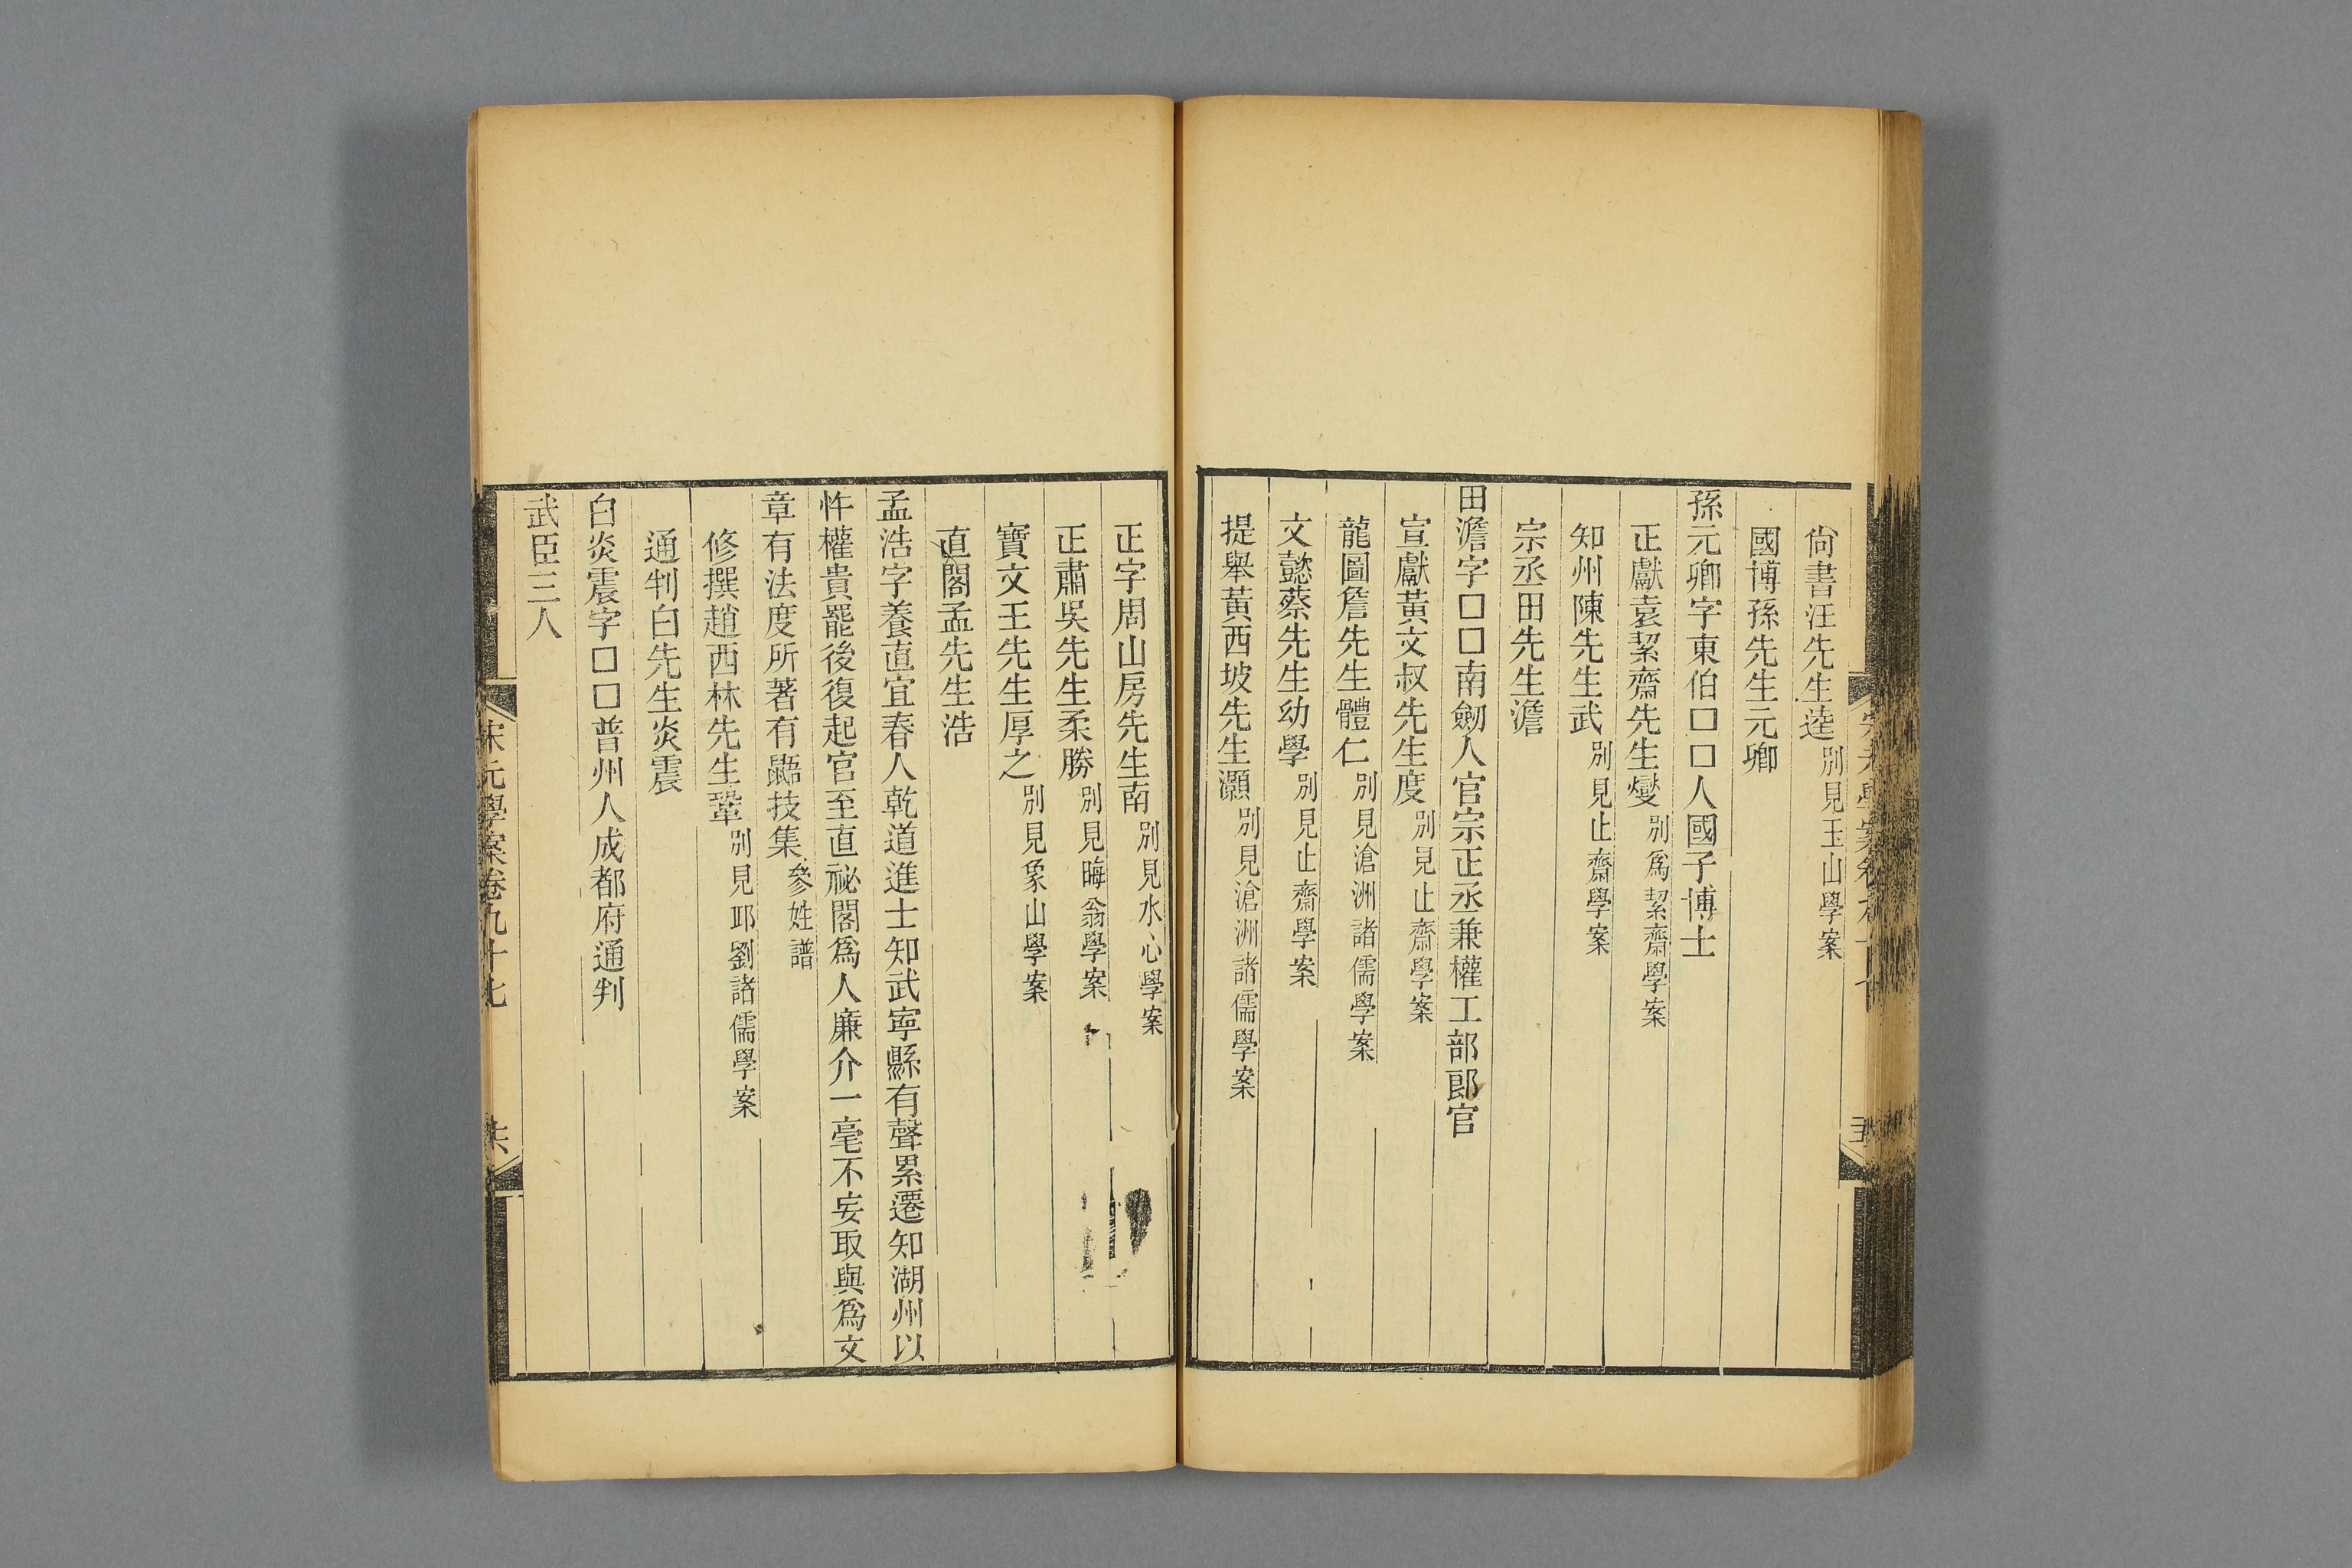 尚書汪先生逵別見玉山學案
國博孫先生元卿
孫元卿字東伯囗囗人國子博士
正獻袁絜齋先生燮別爲絜齋學案
知州陳先生武別見止齋學案
宗丞田先生澹
田澹字囗囗南劒人官宗正丞兼權工部郞官
宣獻黃文叔先生度別見止齋學案
龍圖詹先生體仁別見滄洲諸儒學案
文懿蔡先生幼學別見止齋學案
提舉黃西坡先生灝別見滄洲諸儒學案
正字周山房先生南別見水心學案
正肅吳先生柔勝別見晦翁學案
寶文王先生厚之別見象山學案
直閣孟先生浩
孟浩字養直宜春人乾道進士知武寧縣有聲累遷知湖州以
忤權貴罷後復起官至直祕閣爲人廉介一毫不妄取與爲文
章有法度所著有鼯技集參姓譜
修撰趙西林先生鞏別見邱劉諸儒學案
通判白先生炎震
白炎震字囗囗普州人成都府通判
武臣三人
宋元學案卷九十七